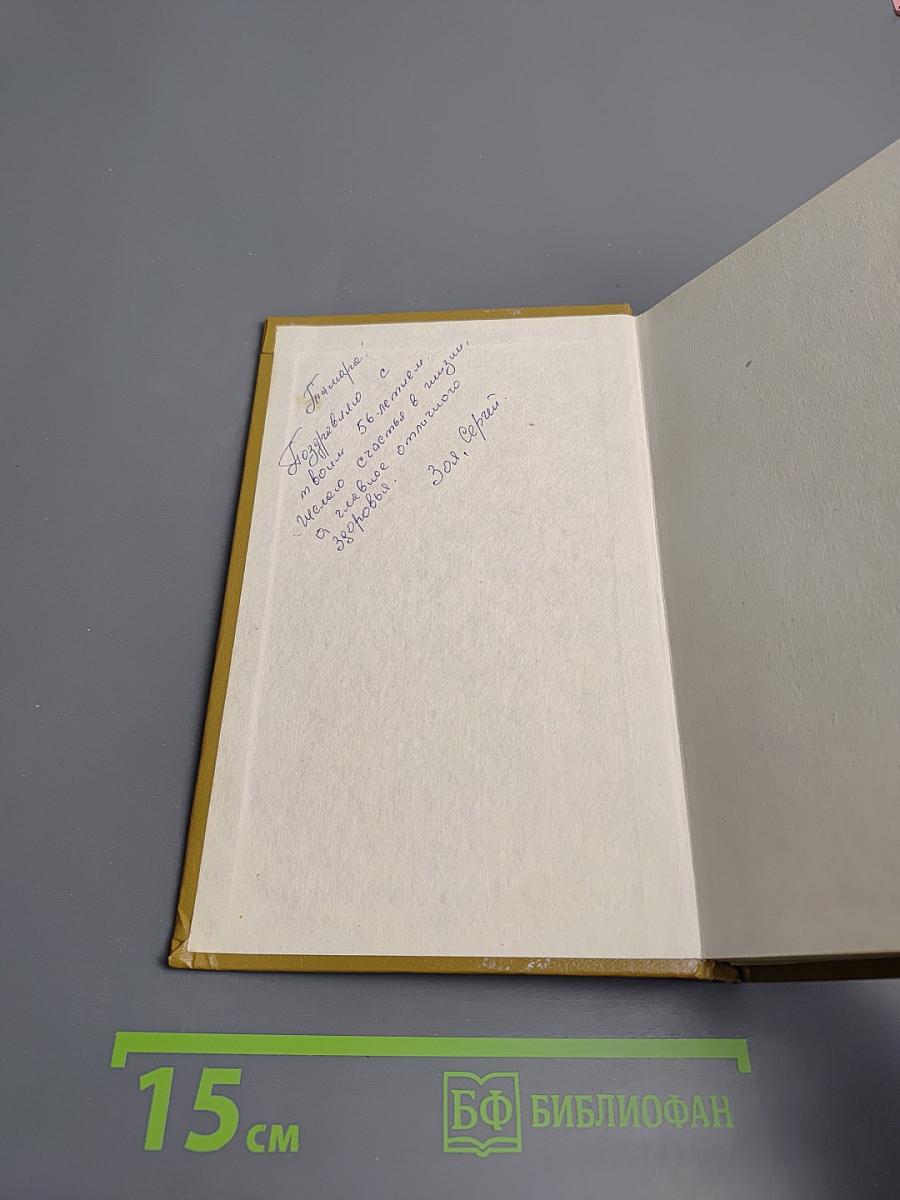 Тамара!
Поздравляю с
твоим 56-летием.
Желаю счастья в жизни,
а главное отличного
здоровья.
Зоя, Сергей.
15 см
БФ БИБЛИОФАН